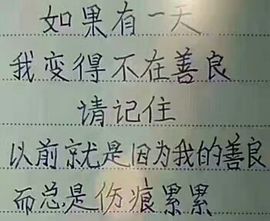 如果有一天
我变得不在善良
请记住
以前就是因为我的善良
而总是伤痕累累